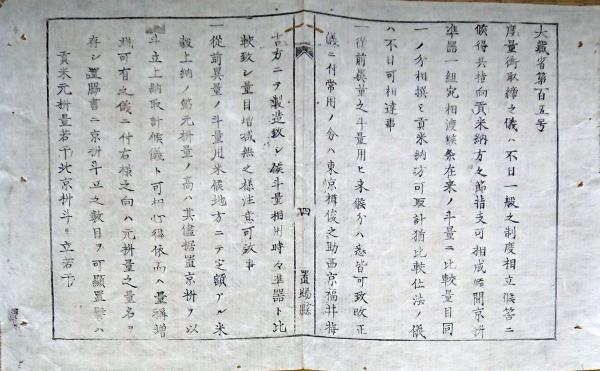 大蔵省第百五号
度量衡取締之儀ハ不日一般之制度相立候筈ニ
候得共指向貢米納方之節指支可相成候間京枡
準器一組宛相渡候条在来ノ斗量ニ比較量目同
一ノ分相撰ミ貢米納方可取計猶比較仕法ノ儀
ハ不日可相達事
一従前異量之斗量用ヒ来候分ハ悉皆可致改正
儀ニ付常用ノ分ハ東京樽俊之助西京福井作
吉方ニテ製造致シ候斗量相用時々準器ト比
較致シ量目増減無之様注意可致事
一従前異量ノ斗量用来候地方ニテ定額アル米
穀上納ノ節元枡量ノ高ハ其儘据置京枡ヲ以
斗立上納取計候儀ト可相心得依而ハ量称増
減可有之儀ニ付右様之向ハ元枡量之量名ヲ
存シ置肩書ニ京枡斗立之数目ヲ可顕置譬ハ
貢米元枡量若干此京枡斗リ立若干
四
置賜縣